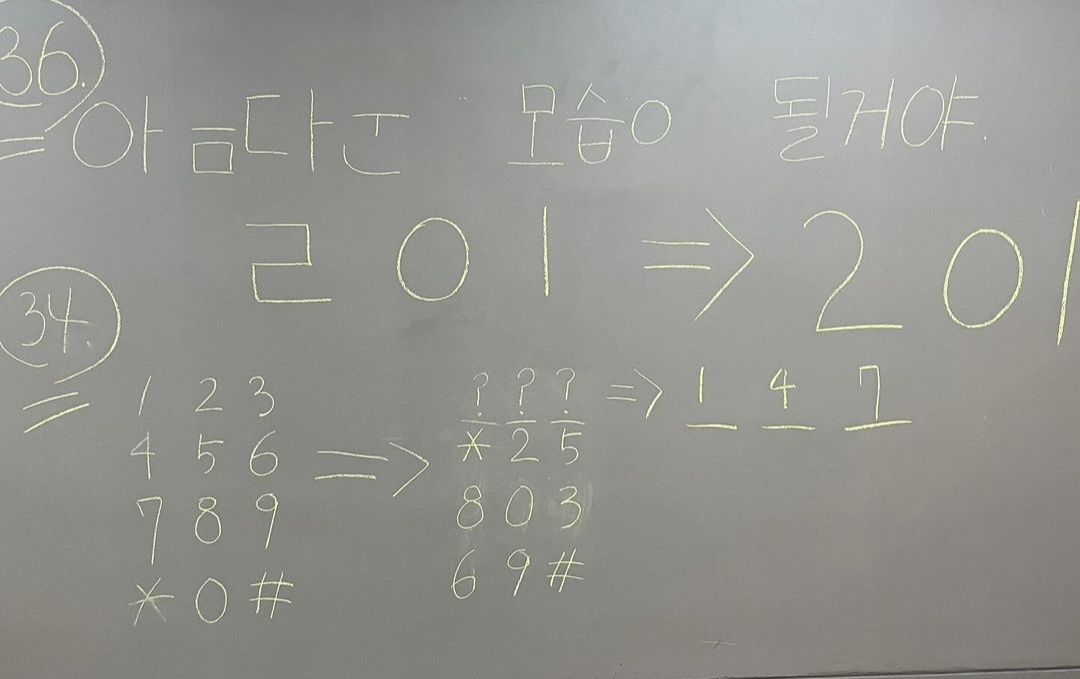 36.
아금다ㅡㄴ 모습ㅇ 될거야.
ㄹ 0 1 ⇒ 2 0 1
34.
1 2 3
4 5 6
7 8 9
* 0 #
⇒
? ? ? ⇒ 1 4 7
* 2 5
8 0 3
6 9 #